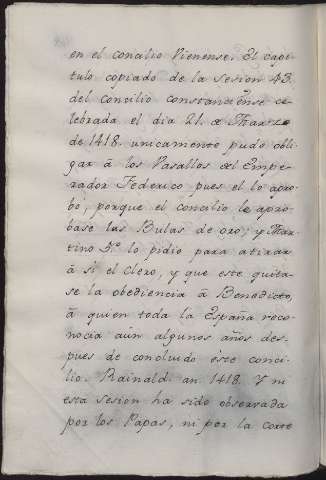 en el concilio Vienense. El capi-
tulo copiado de la sesion 43.
del Concilio constanciense ce-
lebrada el dia 21. de Marzo
de 1418. unicamente pudo obli-
gar á los Vasallos del Empe-
rador Federico pues el lo apro-
bo, porque el concilio le apro-
base las Bulas de oro; y Mar-
tino 5º lo pidio para atirar
á sí el Clero, y que este quita-
se la obediencia á Benedicto,
á quien toda la España reco-
nocia aun algunos años des-
pues de concluido éste conci-
lio. Rainald. an. 1418. Y ni
esta sesion ha sido observada
por los Papas, ni por la Corte